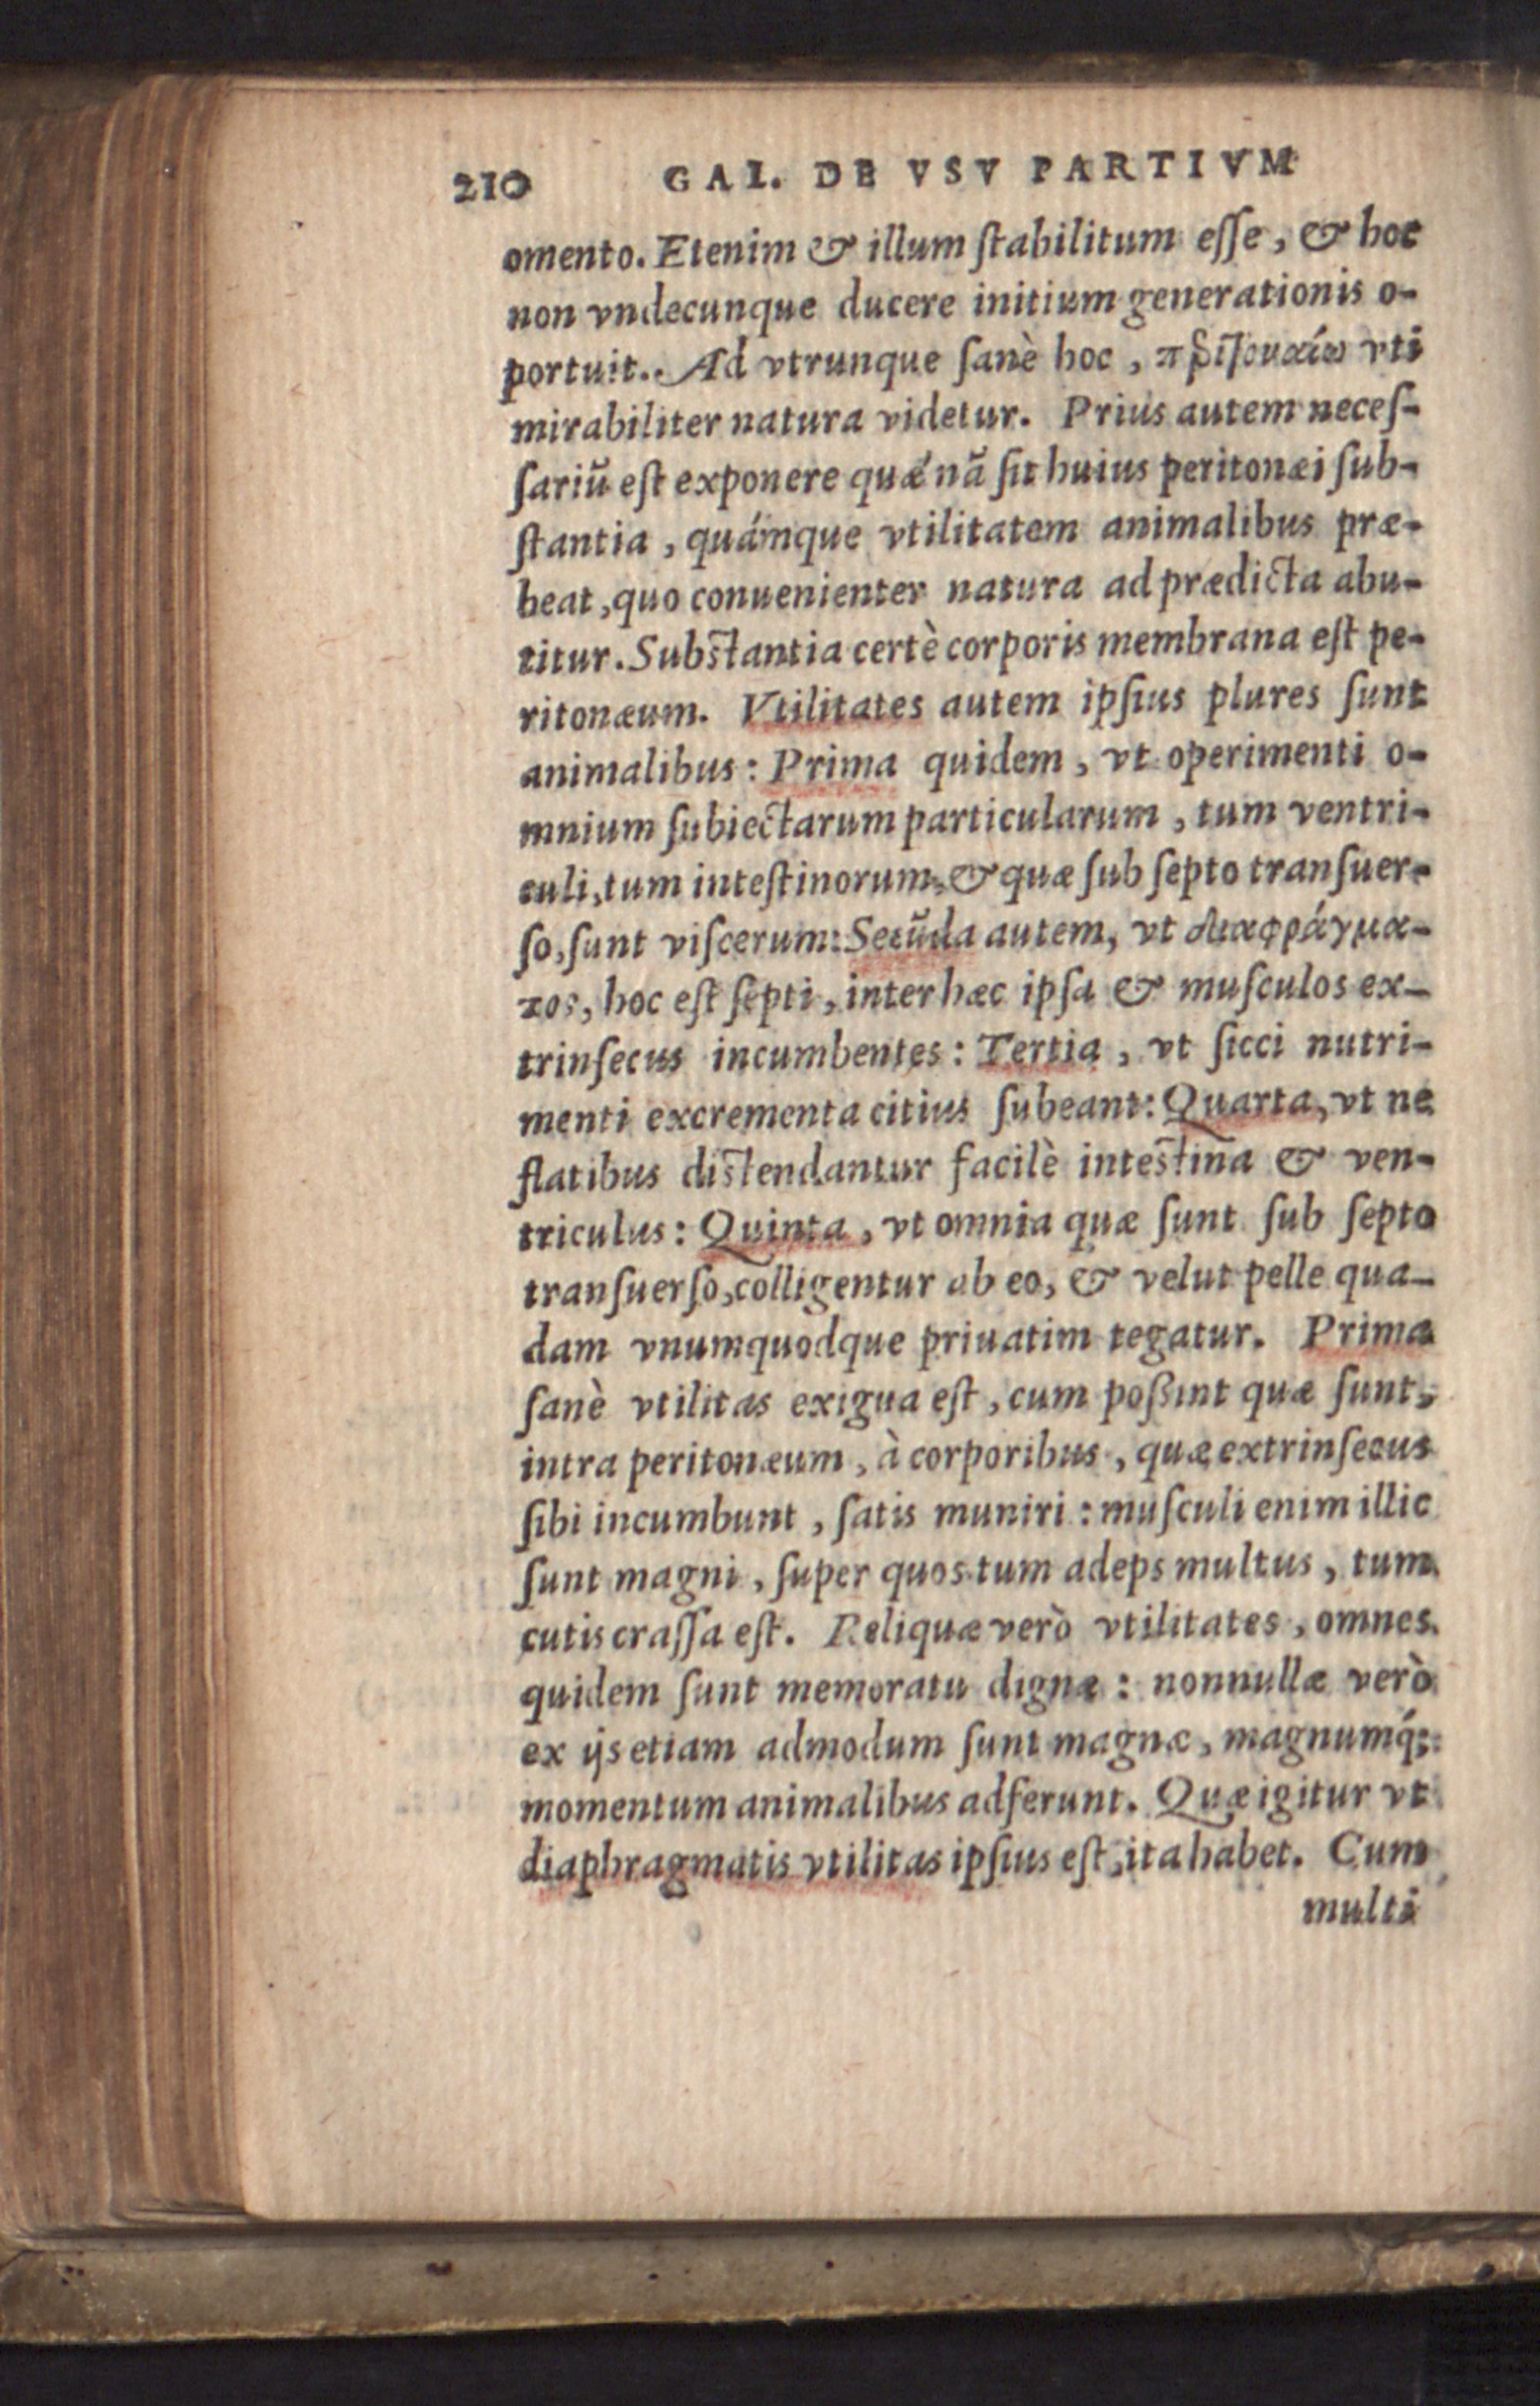 210 GAL. DE VSV PARTIVM
omento. Etenim & illum ſtabilitum eſſe, & hoc
non vndecunque ducere initium generationis o-
portuit. Ad vtrunque ſanè hoc, vti
mirabiliter natura videtur. Prius autem neceſ-
ſariũ eſt exponere quǽ nã ſit huius peritonæi ſub-
ſtantia, quámque vtilitatem animalibus præ-
beat, quo conuenienter natura ad prædicta abu-
titur. Subſtantia certè corporis membrana eſt pe-
ritonæum. Vtilitates autem ipſius plures ſunt
animalibus: Prima quidem, vt operimenti o-
mnium ſubiectarum particularum, tum ventri-
culi, tum inteſtinorum, & quæ ſub ſepto tranſuer-
ſo, ſunt viſcerum: Secũda autem, vt διαφράγμα-
τος, hoc eſt ſepti, inter hæc ipſa & muſculos ex-
trinſecus incumbentes: Tertia, vt ſicci nutri-
menti excrementa citius ſubeant: Quarta, vt ne
flatibus diſtendantur facilè inteſtina & ven-
triculus: Quinta, vt omnia quæ ſunt ſub ſepto
tranſuerſo, colligentur ab eo, & velut pelle qua-
dam vnumquodque priuatim tegatur. Prima
ſanè vtilitas exigua eſt, cum poßint quæ ſunt,
intra peritonæum, à corporibus, quæ extrinſecus
ſibi incumbunt, ſatis muniri: muſculi enim illic
ſunt magni, ſuper quos tum adeps multus, tum
cutis craſſa eſt. Reliquæ verò vtilitates, omnes
quidem ſunt memoratu dignæ: nonnullæ verò
ex ijs etiam admodum ſunt magnæ, magnumq́;
momentum animalibus adferunt. Quæ igitur vt
diaphragmatis vtilitas ipſius eſt, ita habet. Cum
multi